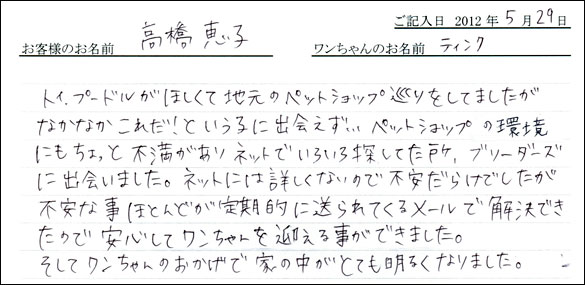 ご記入日 2012年5月29日
お客様のお名前 高橋恵子 ワンちゃんのお名前 ティンク
トイ.プードルがほしくて地元のペットショップ巡りをしてましたが
なかなかこれだ!という子に出会えず... ペットショップの環境
にもちょっと不満がありネットでいろいろ探してた所、ブリーダーズ
に出会いました。ネットには詳しくないので不安だらけでしたが
不安な事ほとんどが定期的に送られてくるメールで解決でき
たので安心してワンちゃんを迎える事ができました。
そしてワンちゃんのおかげで家の中がとても明るくなりました。